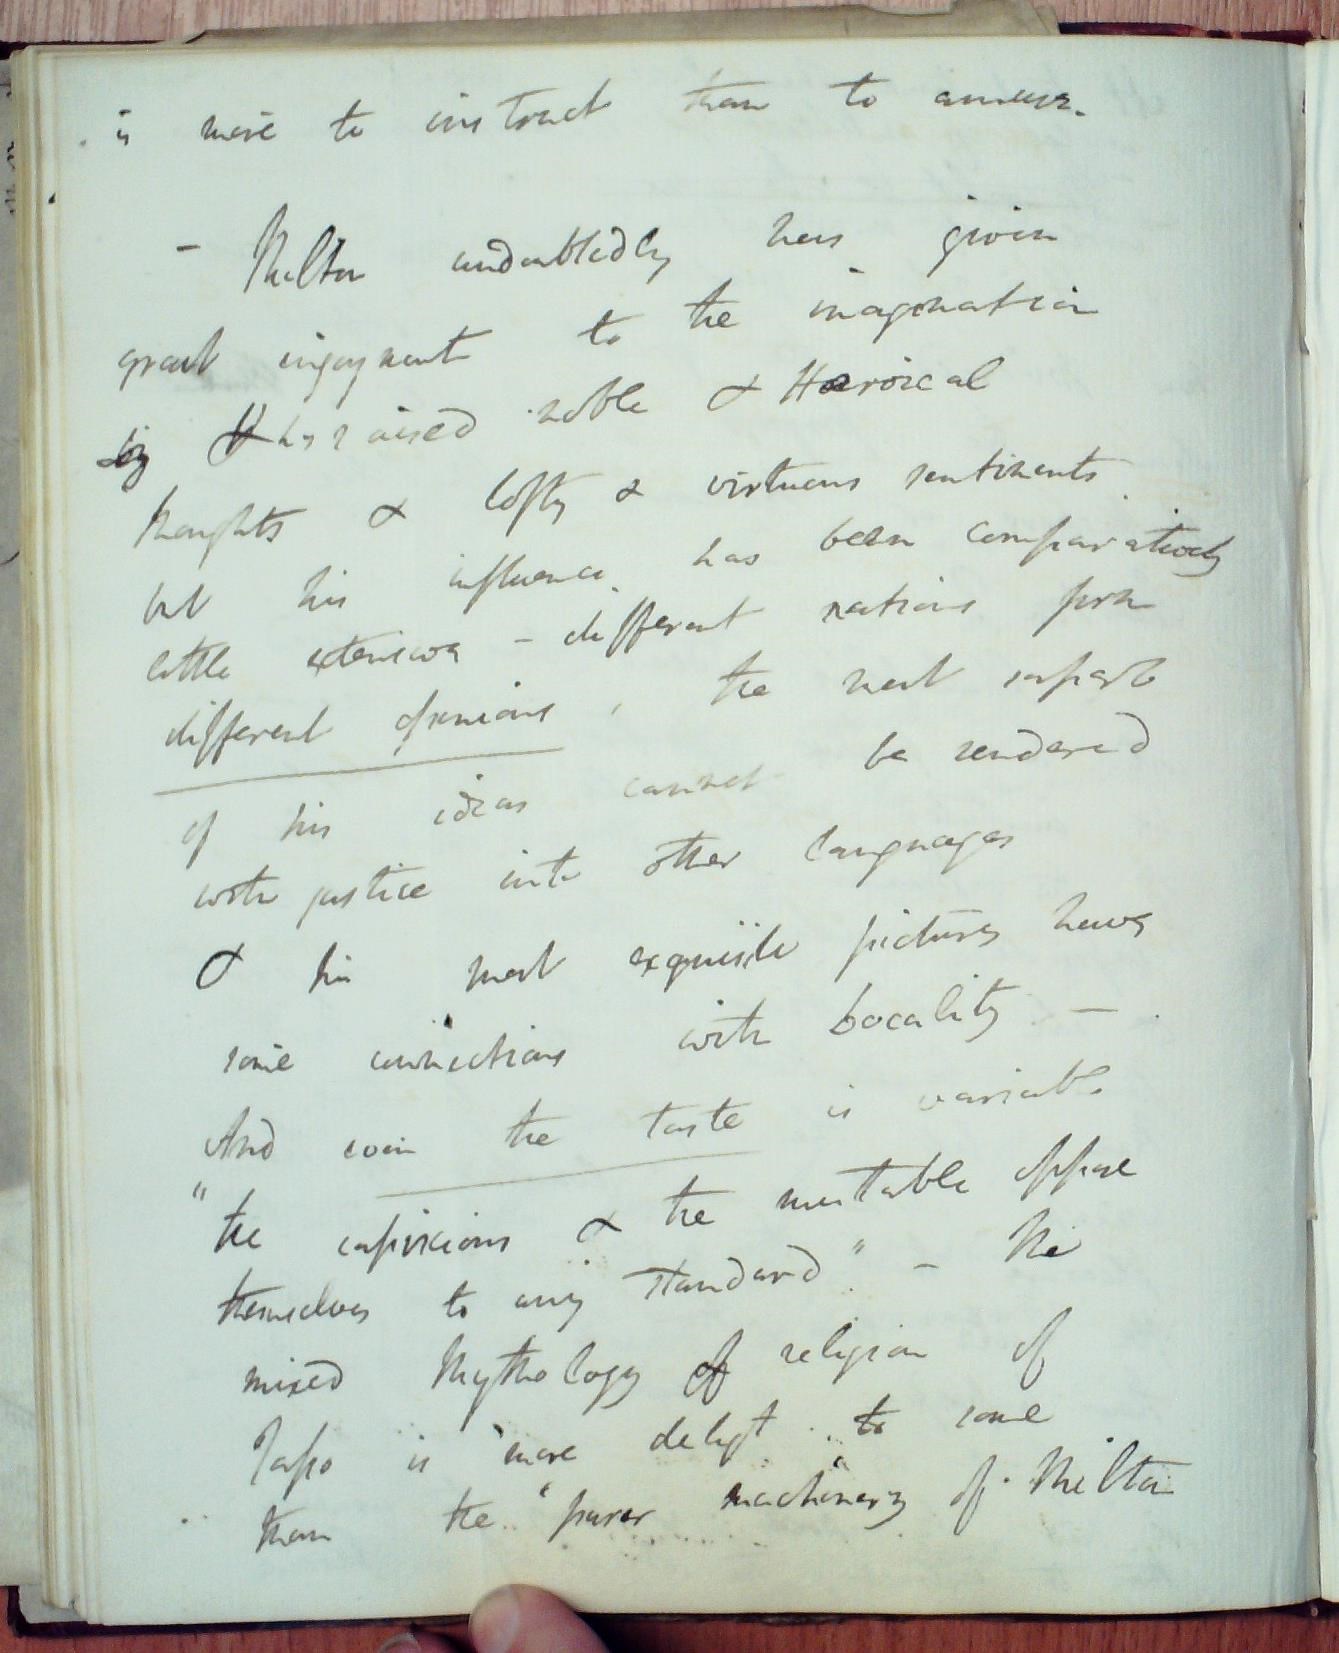 is more to instruct than to amuse.
- Milton undoubtedly has given
great enjoyment to the imagination
by & has raised noble & Heroical
thoughts & lofty & virtuous sentiments
but his influence has been comparatively
little extensive - different nations form
different opinions, the most
of his ideas cannot be rendered
with justice into other languages
& his most exquisite pictures have
some connections with Locality -
And even the taste is variable
"the capricious & the mutable oppose
themselves to any standard" - The
mixed Mythology of religion of
Tasso is more to some
than the "purer machinery" of Milton